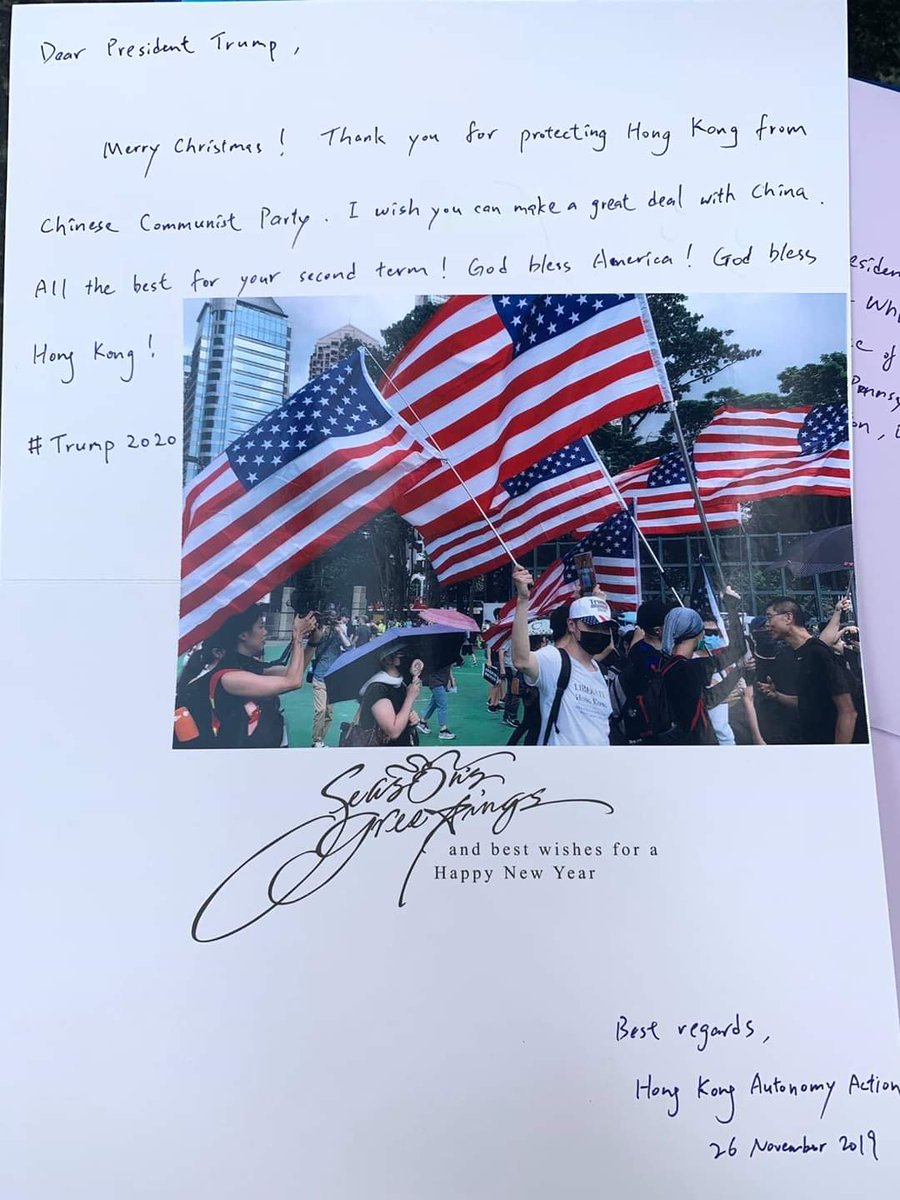 Dear President Trump,
Merry Christmas! Thank you for protecting Hong Kong from
Chinese Communist Party. I wish you can make a great deal with China.
All the best for your second term! God bless America! God bless
Hong Kong!
#Trump 2020
LIBERATE
HONG KONG
Season's
Greetings
and best wishes for a
Happy New Year
Best regards,
Hong Kong Autonomy Action
26 November 2019
of